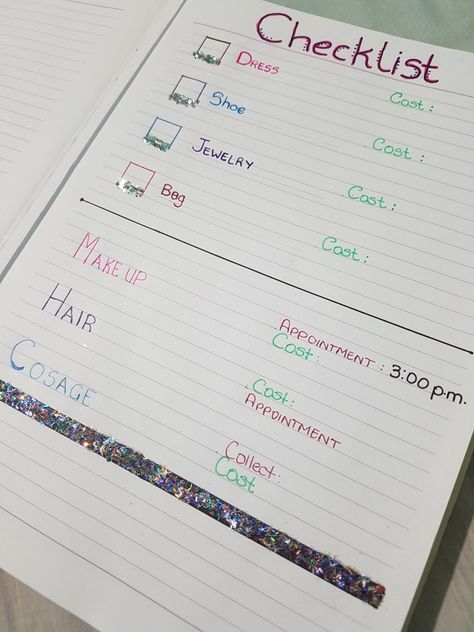 Checklist
DRESS Cost:
Shoe Cost:
JEWELRY Cost:
Bag Cost:
MAKE UP APPOINTMENT: 3:00 p.m.
Cost:
HAIR Cost:
APPOINTMENT
COSAGE Collect:
Cost